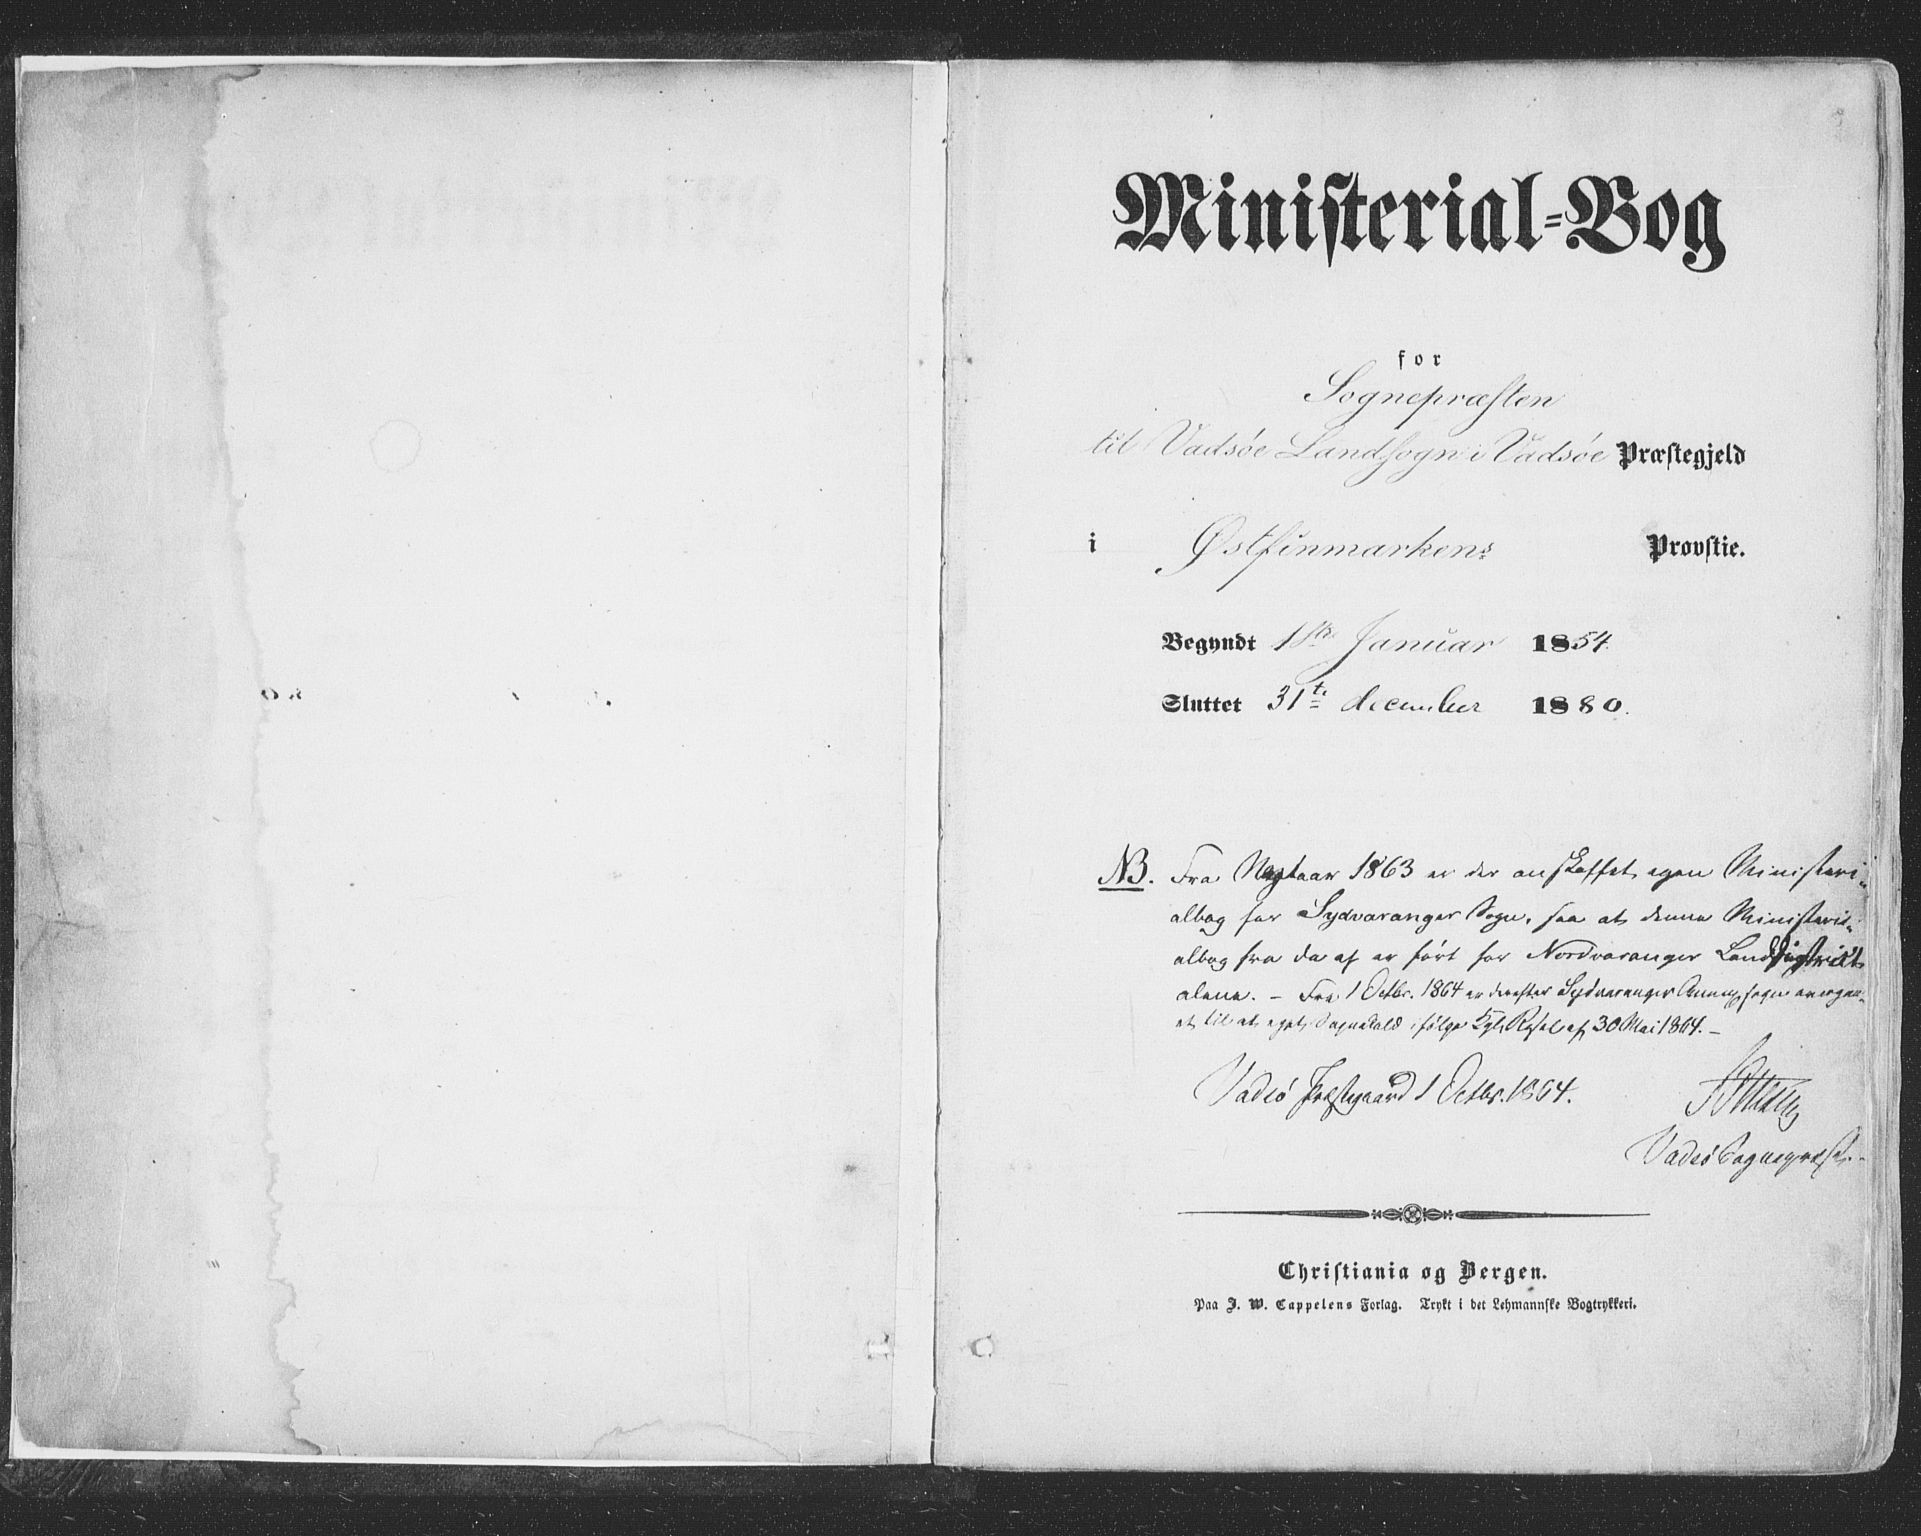 Ministerial-Bog
for
Sognepræsten
til Vadsöe Landsogn i Vadsöe Præstegjeld
i Østfinmarkens Provstie.
Begyndt 1ste Januar 1854.
Sluttet 31te december 1880.
NB. Fra Nytaar 1863 er der anskaffet egen Ministeri-
albog for Sydvaranger Sogn, saa at denne Ministeri-
albog fra da af er ført for Nordvaranger Landdistrikt
alene. - Fra 1 Octbr. 1864 er derefter Sydvaranger Annexsogn overgaa-
et til et eget Sognekald ifølge Kgl. Resol. af 30 Mai 1864. -
Vadsö Præstgaard 1 Octbr. 1864.
Vadsö Sognepræst.
Christiania og Bergen.
Paa J. W. Cappelens Forlag. Trykt i det Lehmannske Bogtrykkeri.